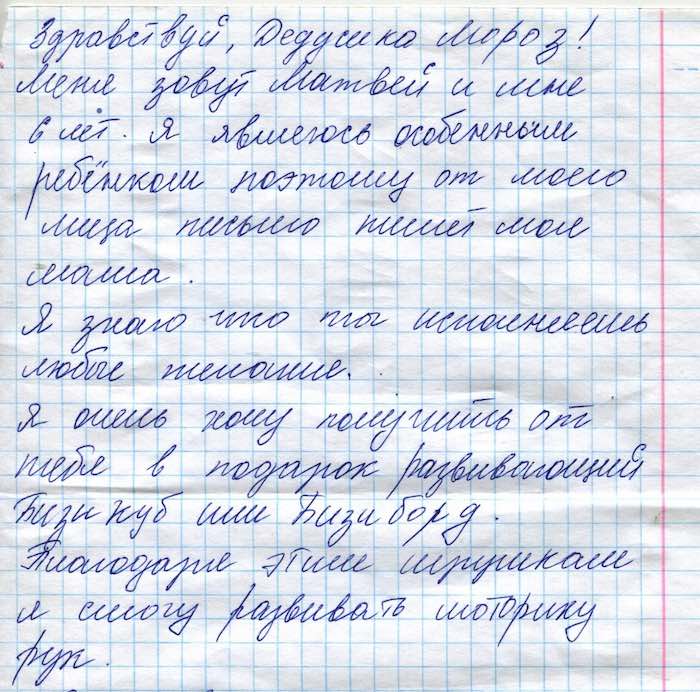 Здравствуй, Дедушка Мороз!
Меня зовут Матвей и мне
6 лет. Я являюсь особенным
ребёнком поэтому от моего
лица письмо пишет моя
мама.
Я знаю что ты исполняешь
любые желание.
Я очень хочу получить от
тебя в подарок развивающий
Бизи куб или Бизи борд.
Благодаря этим игрушкам
я смогу развивать моторику
рук.